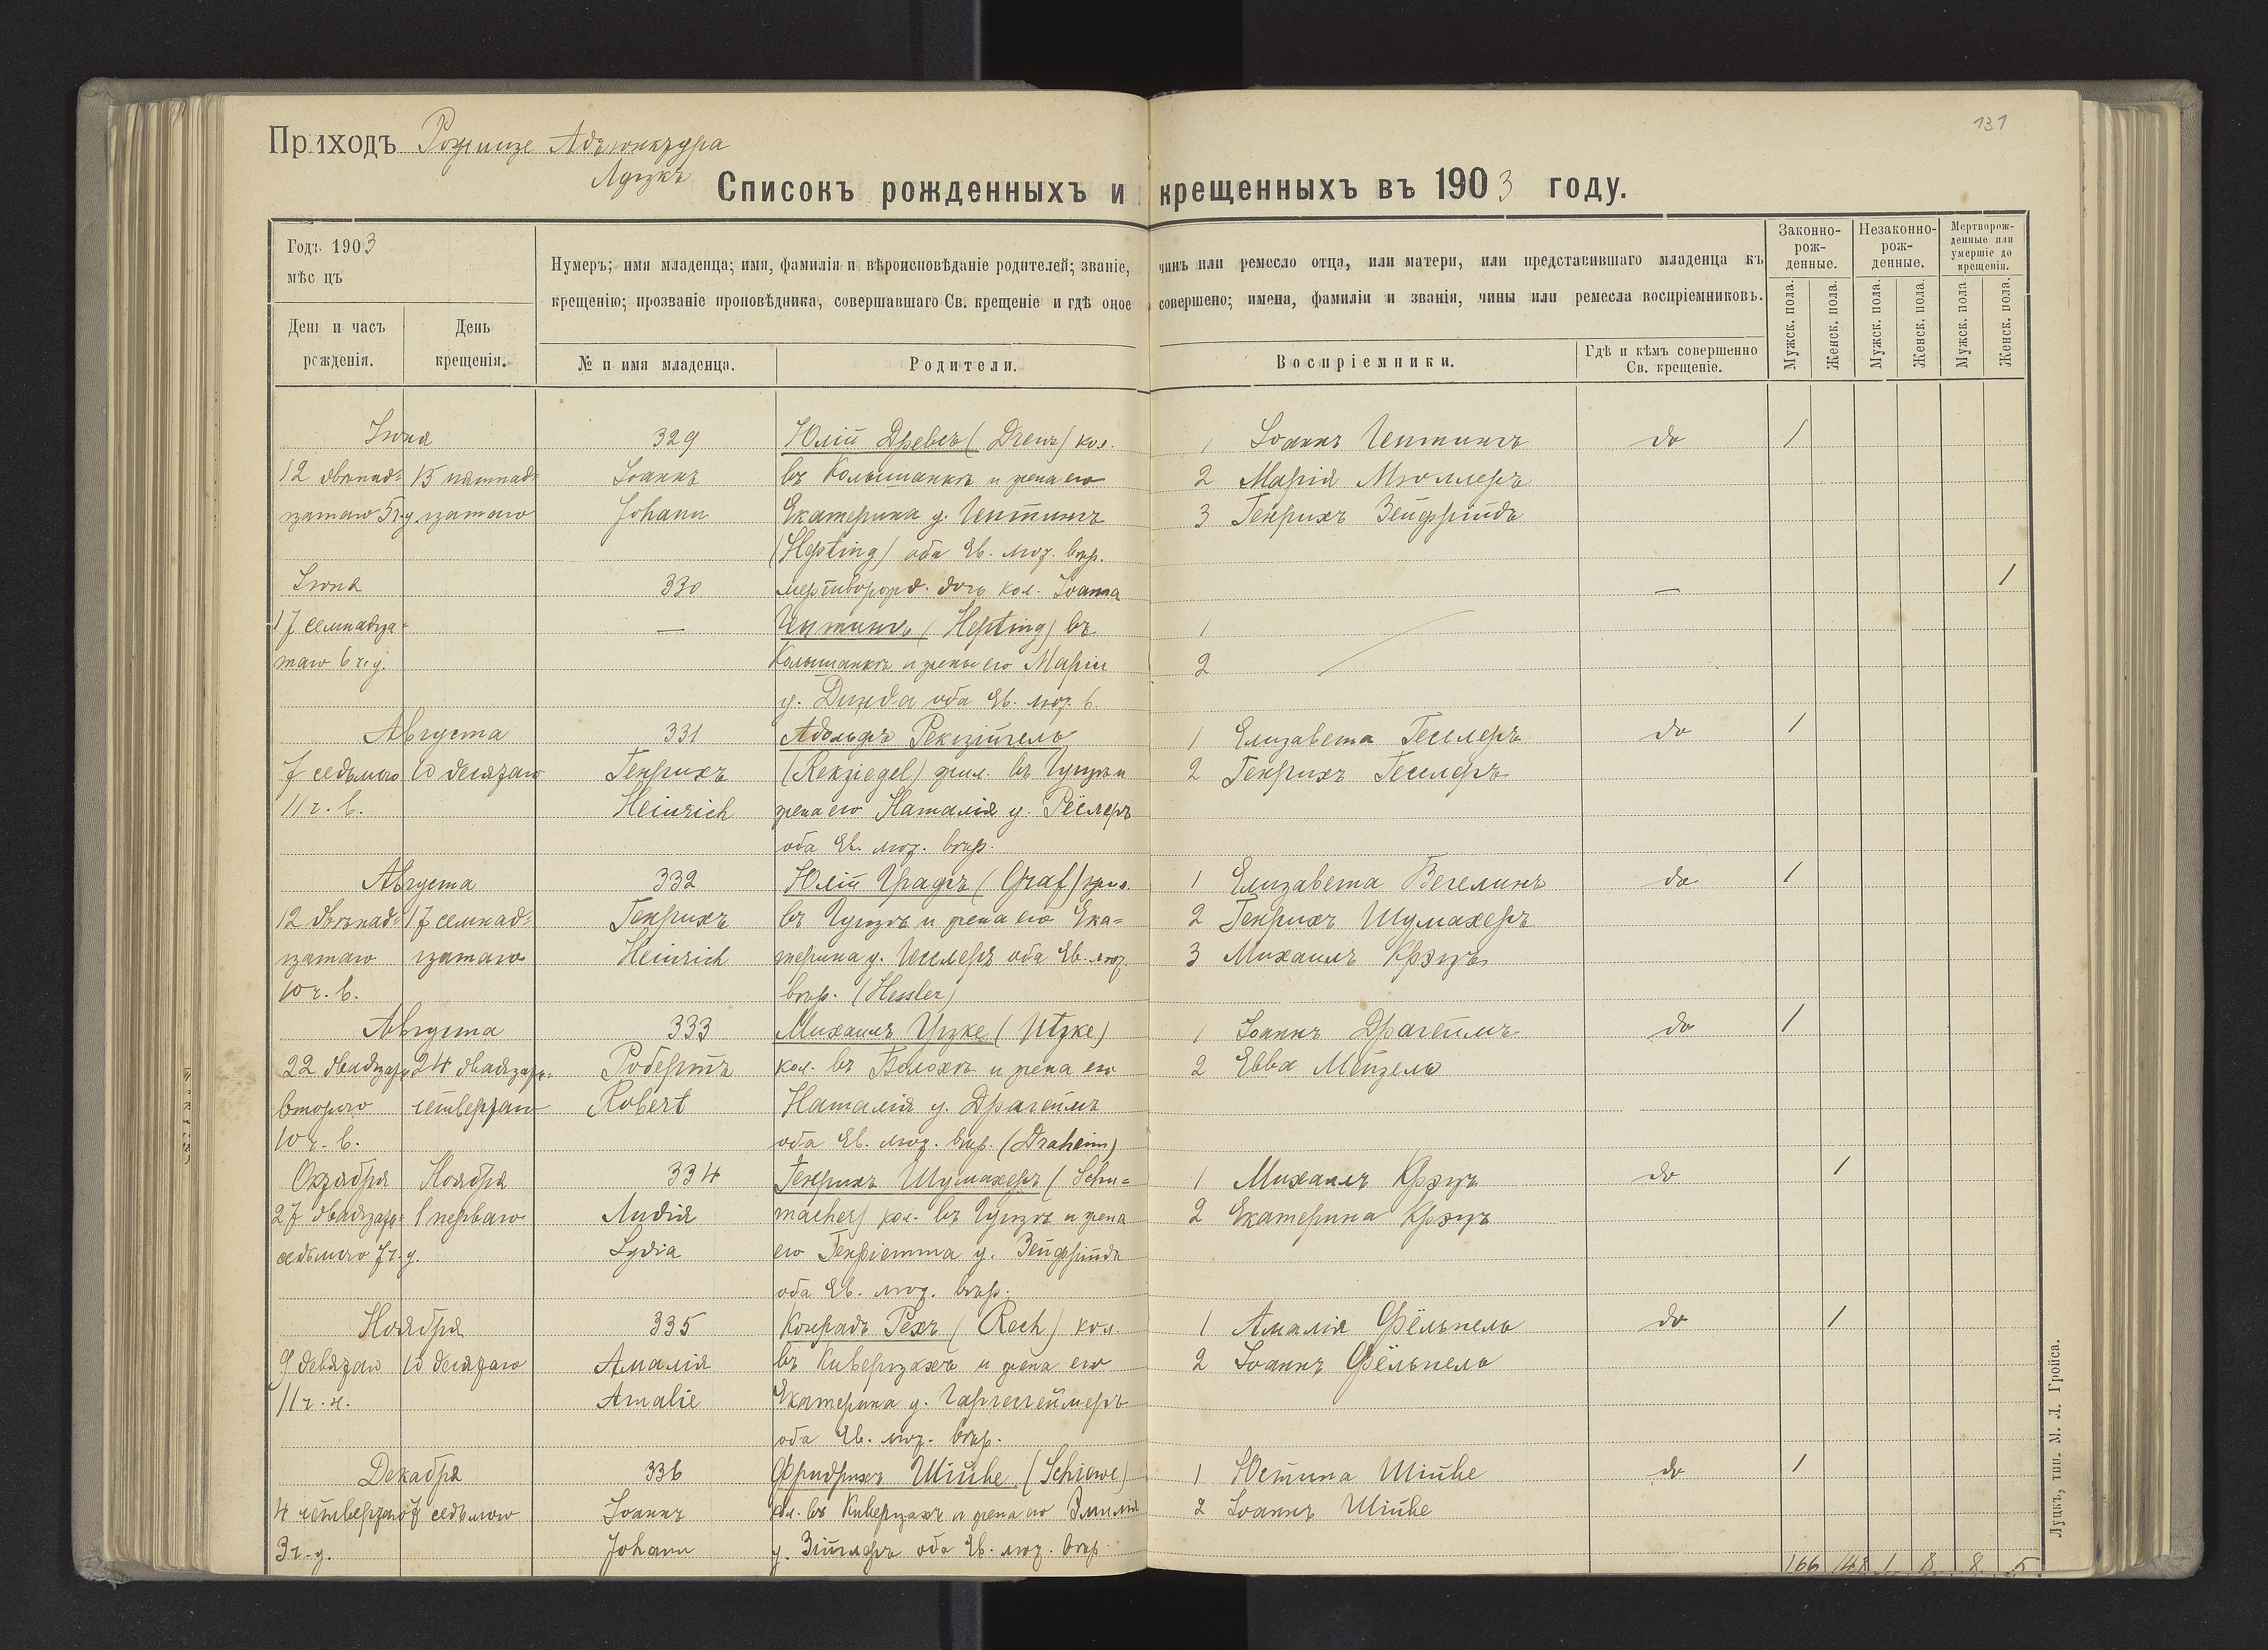 131
Приходъ Рожище Адъюнктура
Луцкъ
Списокъ рожденныхъ и крещенныхъ въ 1903 году.
Годъ 1903
мѣсяцъ
День и часъ рожденія.
День крещенія.
Нумеръ; имя младенца; имя, фамилія и вѣроисповѣданіе родителей; званіе, чинъ или ремесло отца, или матери, или представившаго младенца къ
крещенію; прозваніе проповѣдника, совершавшаго Св. крещеніе и гдѣ оное совершено; имена, фамиліи и званія, чины или ремесла воспріемниковъ.
№ и имя младенца.
Родители.
Воспріемники.
Гдѣ и кѣмъ совершенно Св. крещеніе.
Законно-рож-денные.
Незаконно-рож-денные.
Мертворож-денные или умершіе до крещенія.
Мужск. пола.
Женск. пола.
Мужск. пола.
Женск. пола.
Мужск. пола
Женск. пола.
Іюня 329 Юлій Древсъ (Drews) кол. 1 Іоаннъ Гептингъ do 1
12 двѣнад= 15 пятнад= Іоаннъ въ Колышанкѣ и жена его 2 Марія Мюллеръ
цатаго 5 ч. у цатаго Johann Екатерина у. Гептингъ 3 Генрихъ Зейфридъ
(Hepting) оба Ев. лют. вѣр.
Іюня 330 мертворожд. дочь кол. Іоанна — 1
17 семнадца= — Гептингъ (Hepting) въ 1
таго 6 ч. у. Колышанкѣ и жены его Маріи 2
у. оба Ев. лют. в.
Августа 331 Адольфъ Рекцигель 1 Елизавета Гесслеръ do 1
7 седьмого 10 десятаго Генрихъ (Rekziegel) жил. въ и 2 Генрихъ Гесслеръ
11 ч. в. Heinrich жена его Наталія у.
оба Ев. лют. вѣр.
Августа 332 Юлій Графъ (Graf) 1 Елизавета Вегелинъ do 1
12 двѣнад= 17 семнад= Генрихъ въ и жена его Ека= 2 Генрихъ Шумахеръ
цатаго цатаго Heinrich терина у. Гесслеръ оба Ев. лют. 3 Михаилъ Крэцъ
10 ч. в. вѣр. (Hessler)
Августа 333 Михаилъ Уцке (Utzke) 1 Іоаннъ Драгеймъ do 1
22 двадцать 24 двадцать= Робертъ кол. въ и жена его 2 Евва Мейзель
второго четвертаго Robert Наталія у. Драгеймъ
10 ч. в. оба Ев. лют. вѣр. (Draheim)
Октября Ноября 334 Генрихъ Шумахеръ (Schu= 1 Михаилъ Крэцъ do 1
27 двадцать= 1 перваго Лидія macher) кол. въ и жена 2 Екатерина Крэцъ
седьмого 7 ч. у. Lydia его Генріетта у. Зейфридъ
оба Ев. лют. вѣр.
Ноября 335 Конрадъ Рехъ (Rech) кол. 1 Амалія Фёльпель do 1
9 девятаго 10 десятаго Амалія въ Киверцахъ и жена его 2 Іоаннъ Фёльпель
11 ч. н. Amalie Екатерина у.
оба Ев. лют. вѣр.
Декабря 336 Фридрихъ Шиве (Schiewe) 1 Юстина Шиве do 1
4 четвертаго 7 седьмого Іоаннъ кол. въ Киверцахъ и жена его Эмилія 2 Іоаннъ Шиве
3 ч. у. Johann у. Зиглеръ оба Ев. лют. вѣр.
166 148 1 8 8 5
Луцкъ, тип. М. Л. Гройса.